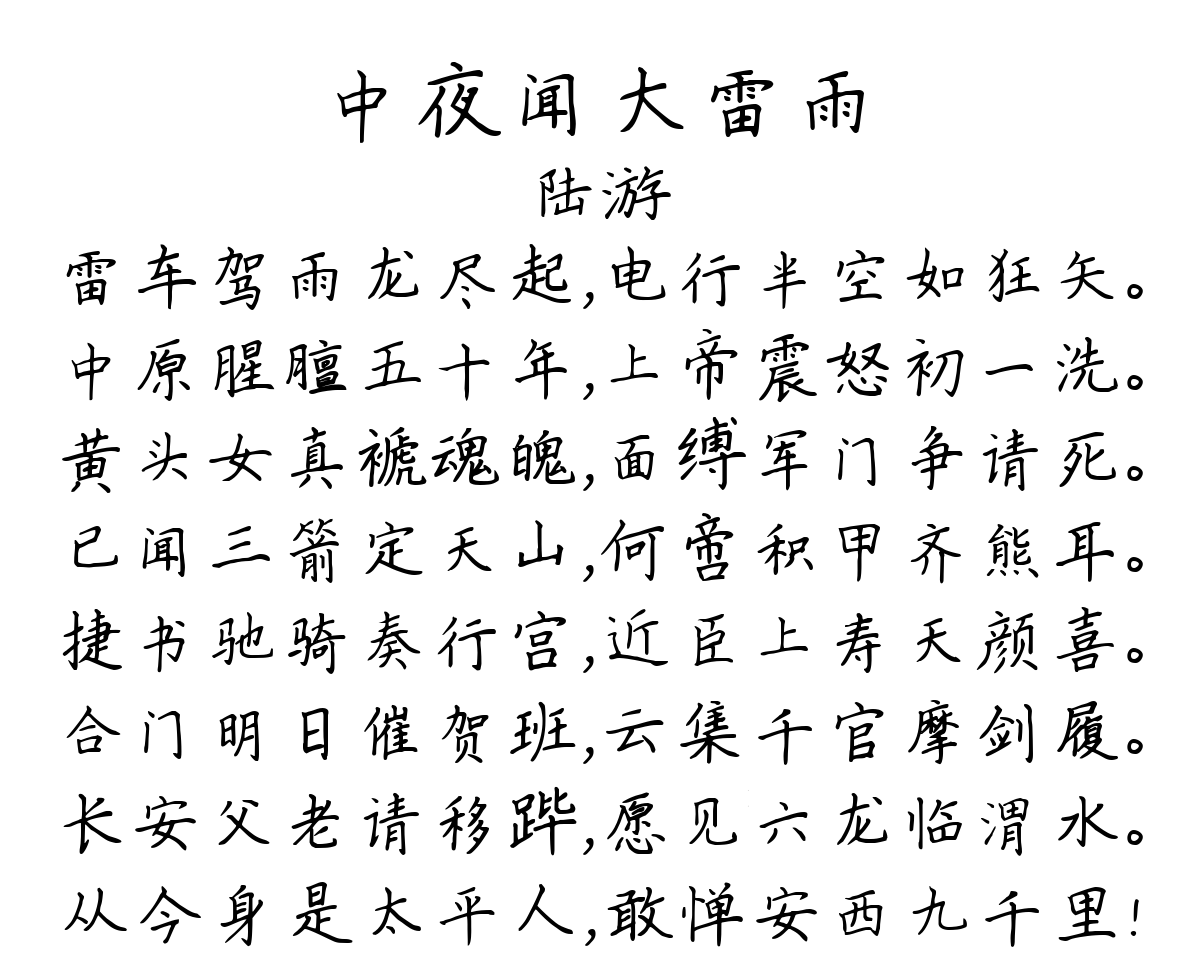 中夜闻大雷雨
陆游
雷车驾雨龙尽起,电行半空如狂矢。
中原腥膻五十年,上帝震怒初一洗。
黄头女真褫魂魄,面缚军门争请死。
已闻三箭定天山,何啻积甲齐熊耳。
捷书驰骑奏行宫,近臣上寿天颜喜。
合门明日催贺班,云集千官摩剑履。
长安父老请移跸,愿见六龙临渭水。
从今身是太平人,敢惮安西九千里!